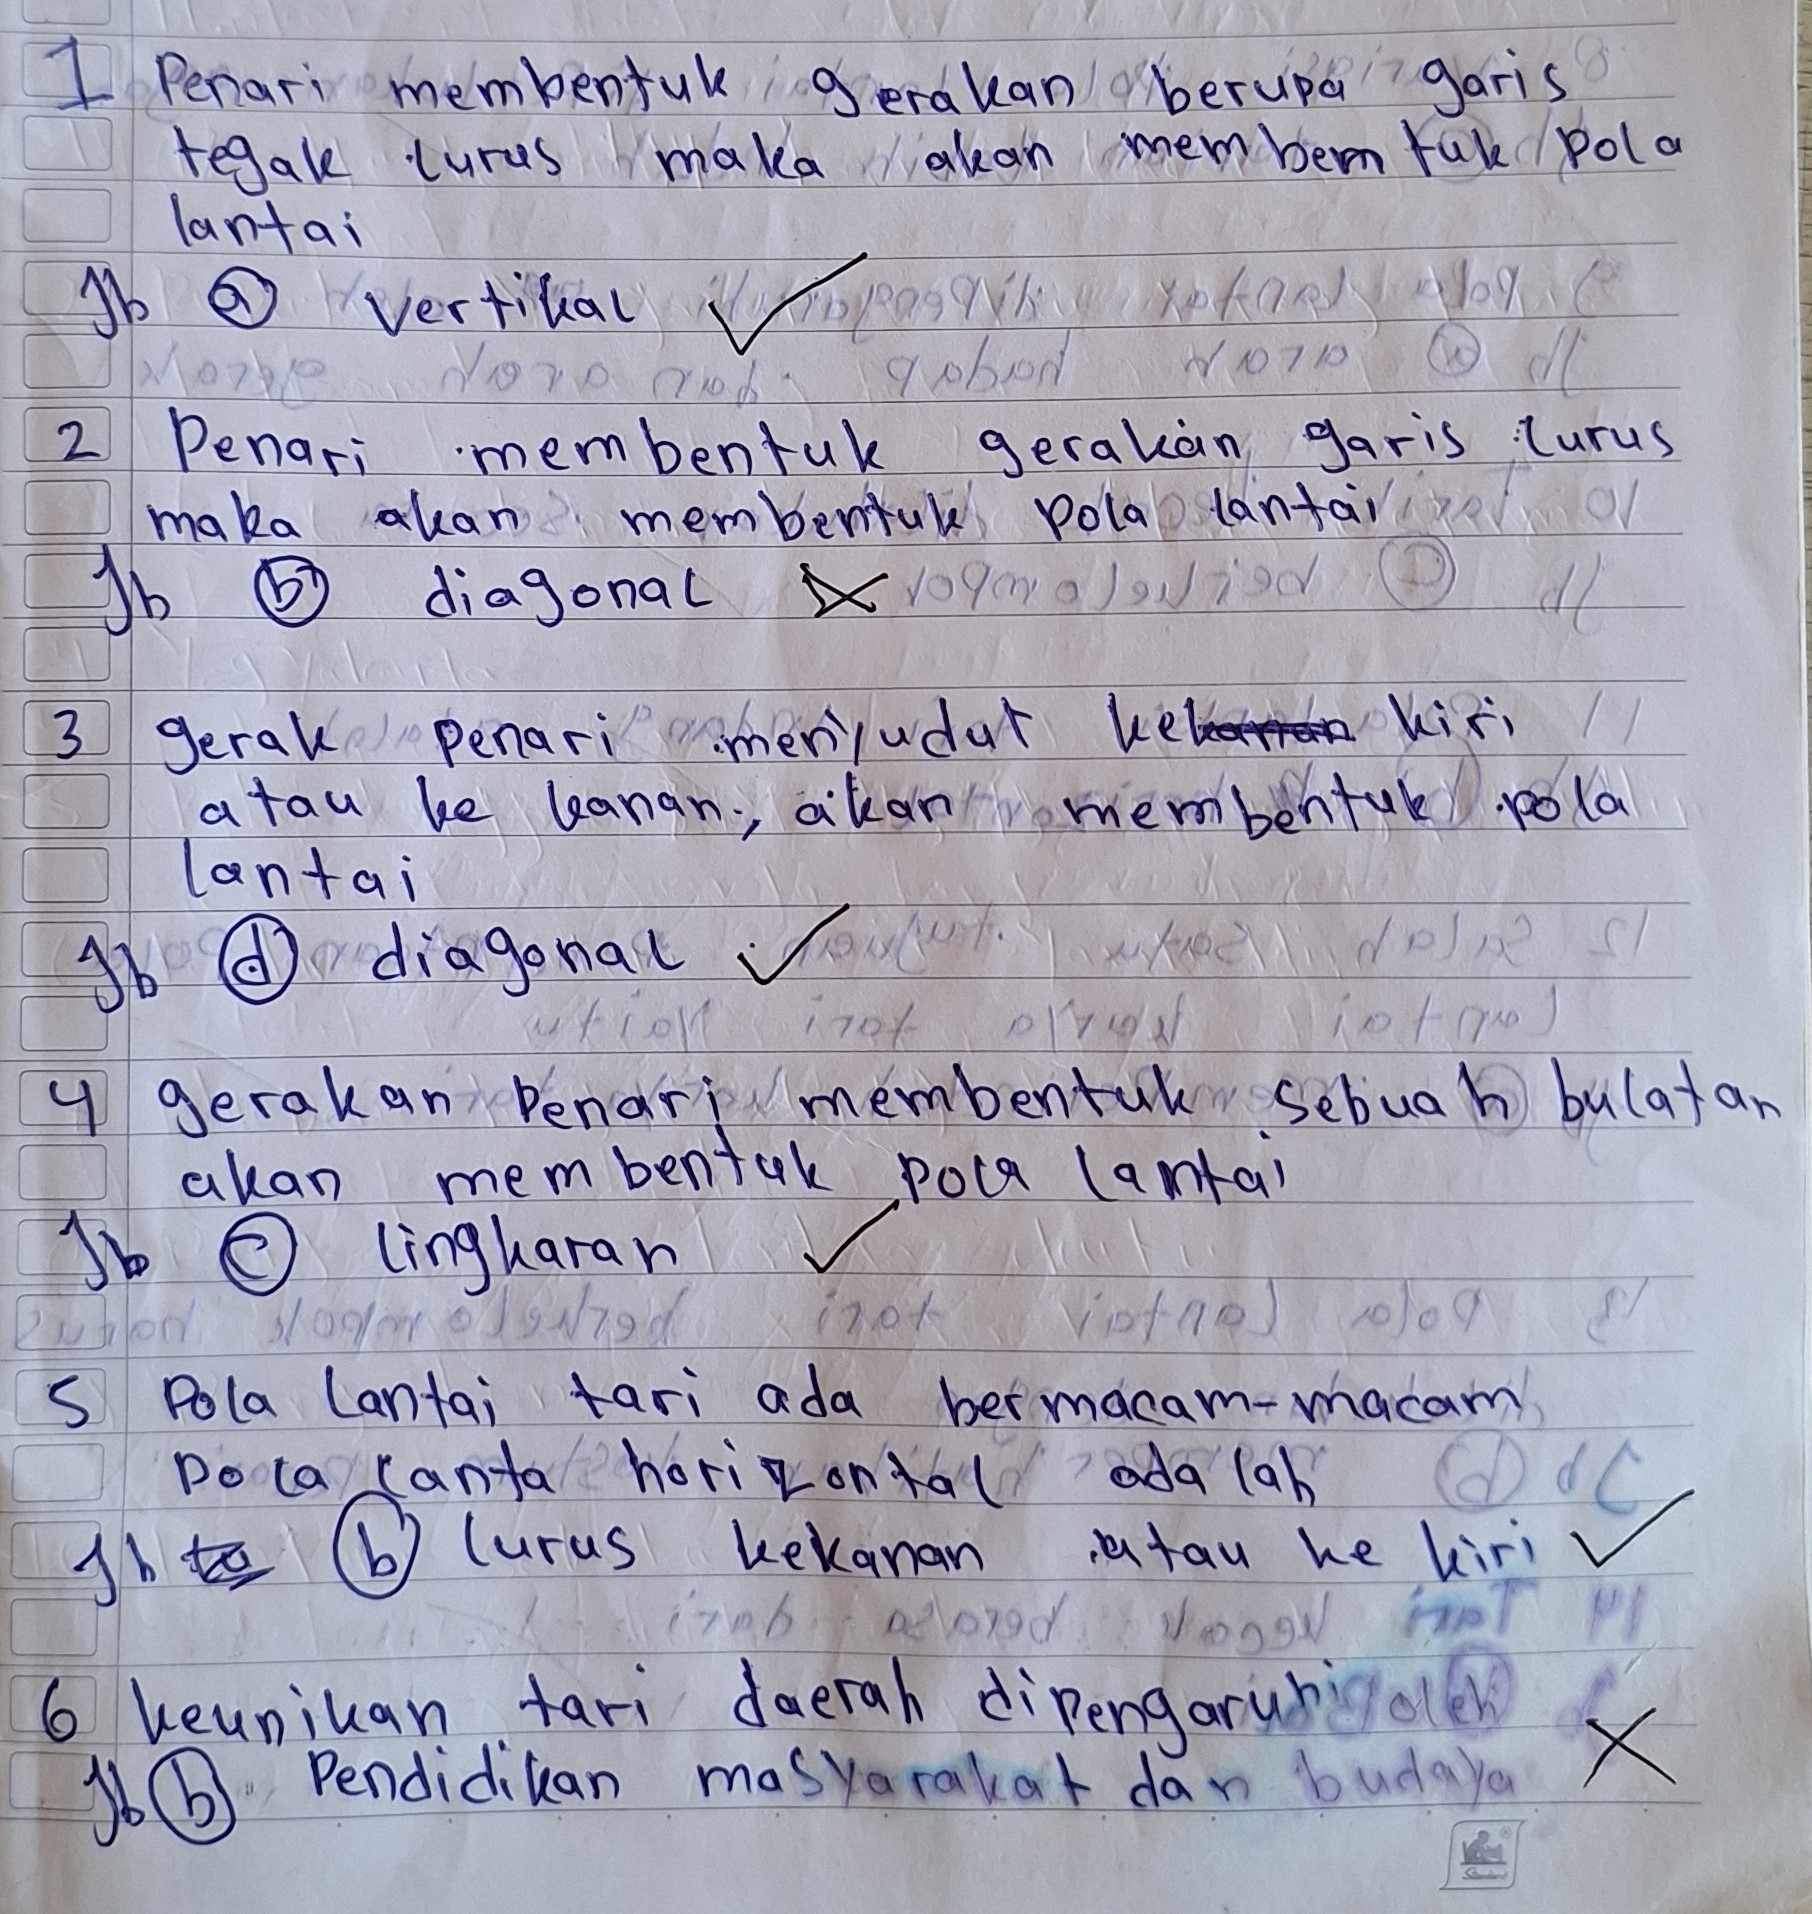 1 Penari membentuk gerakan berupa garis
tegak lurus maka akan membemtuk pola
lantai
Jb a vertikal
2 Penari membentuk gerakan garis lurus
maka akan membentuk pola lantai
Jb b diagonal
3 gerak penari menyudut kekanan kiri
atau ke kanan, akan membentuk pola
lantai
Jb d diagonal
4 gerakan Penari membentuk sebuah bulatan
akan membentuk pola lantai
Jb c lingkaran
5 Pola lantai tari ada bermacam-macam
Pola lanta horizontal adalah
Jb b lurus kekanan atau ke kiri
6 keunikan tari daerah dipengaruhi oleh
Jb b Pendidikan masyarakat dan budaya